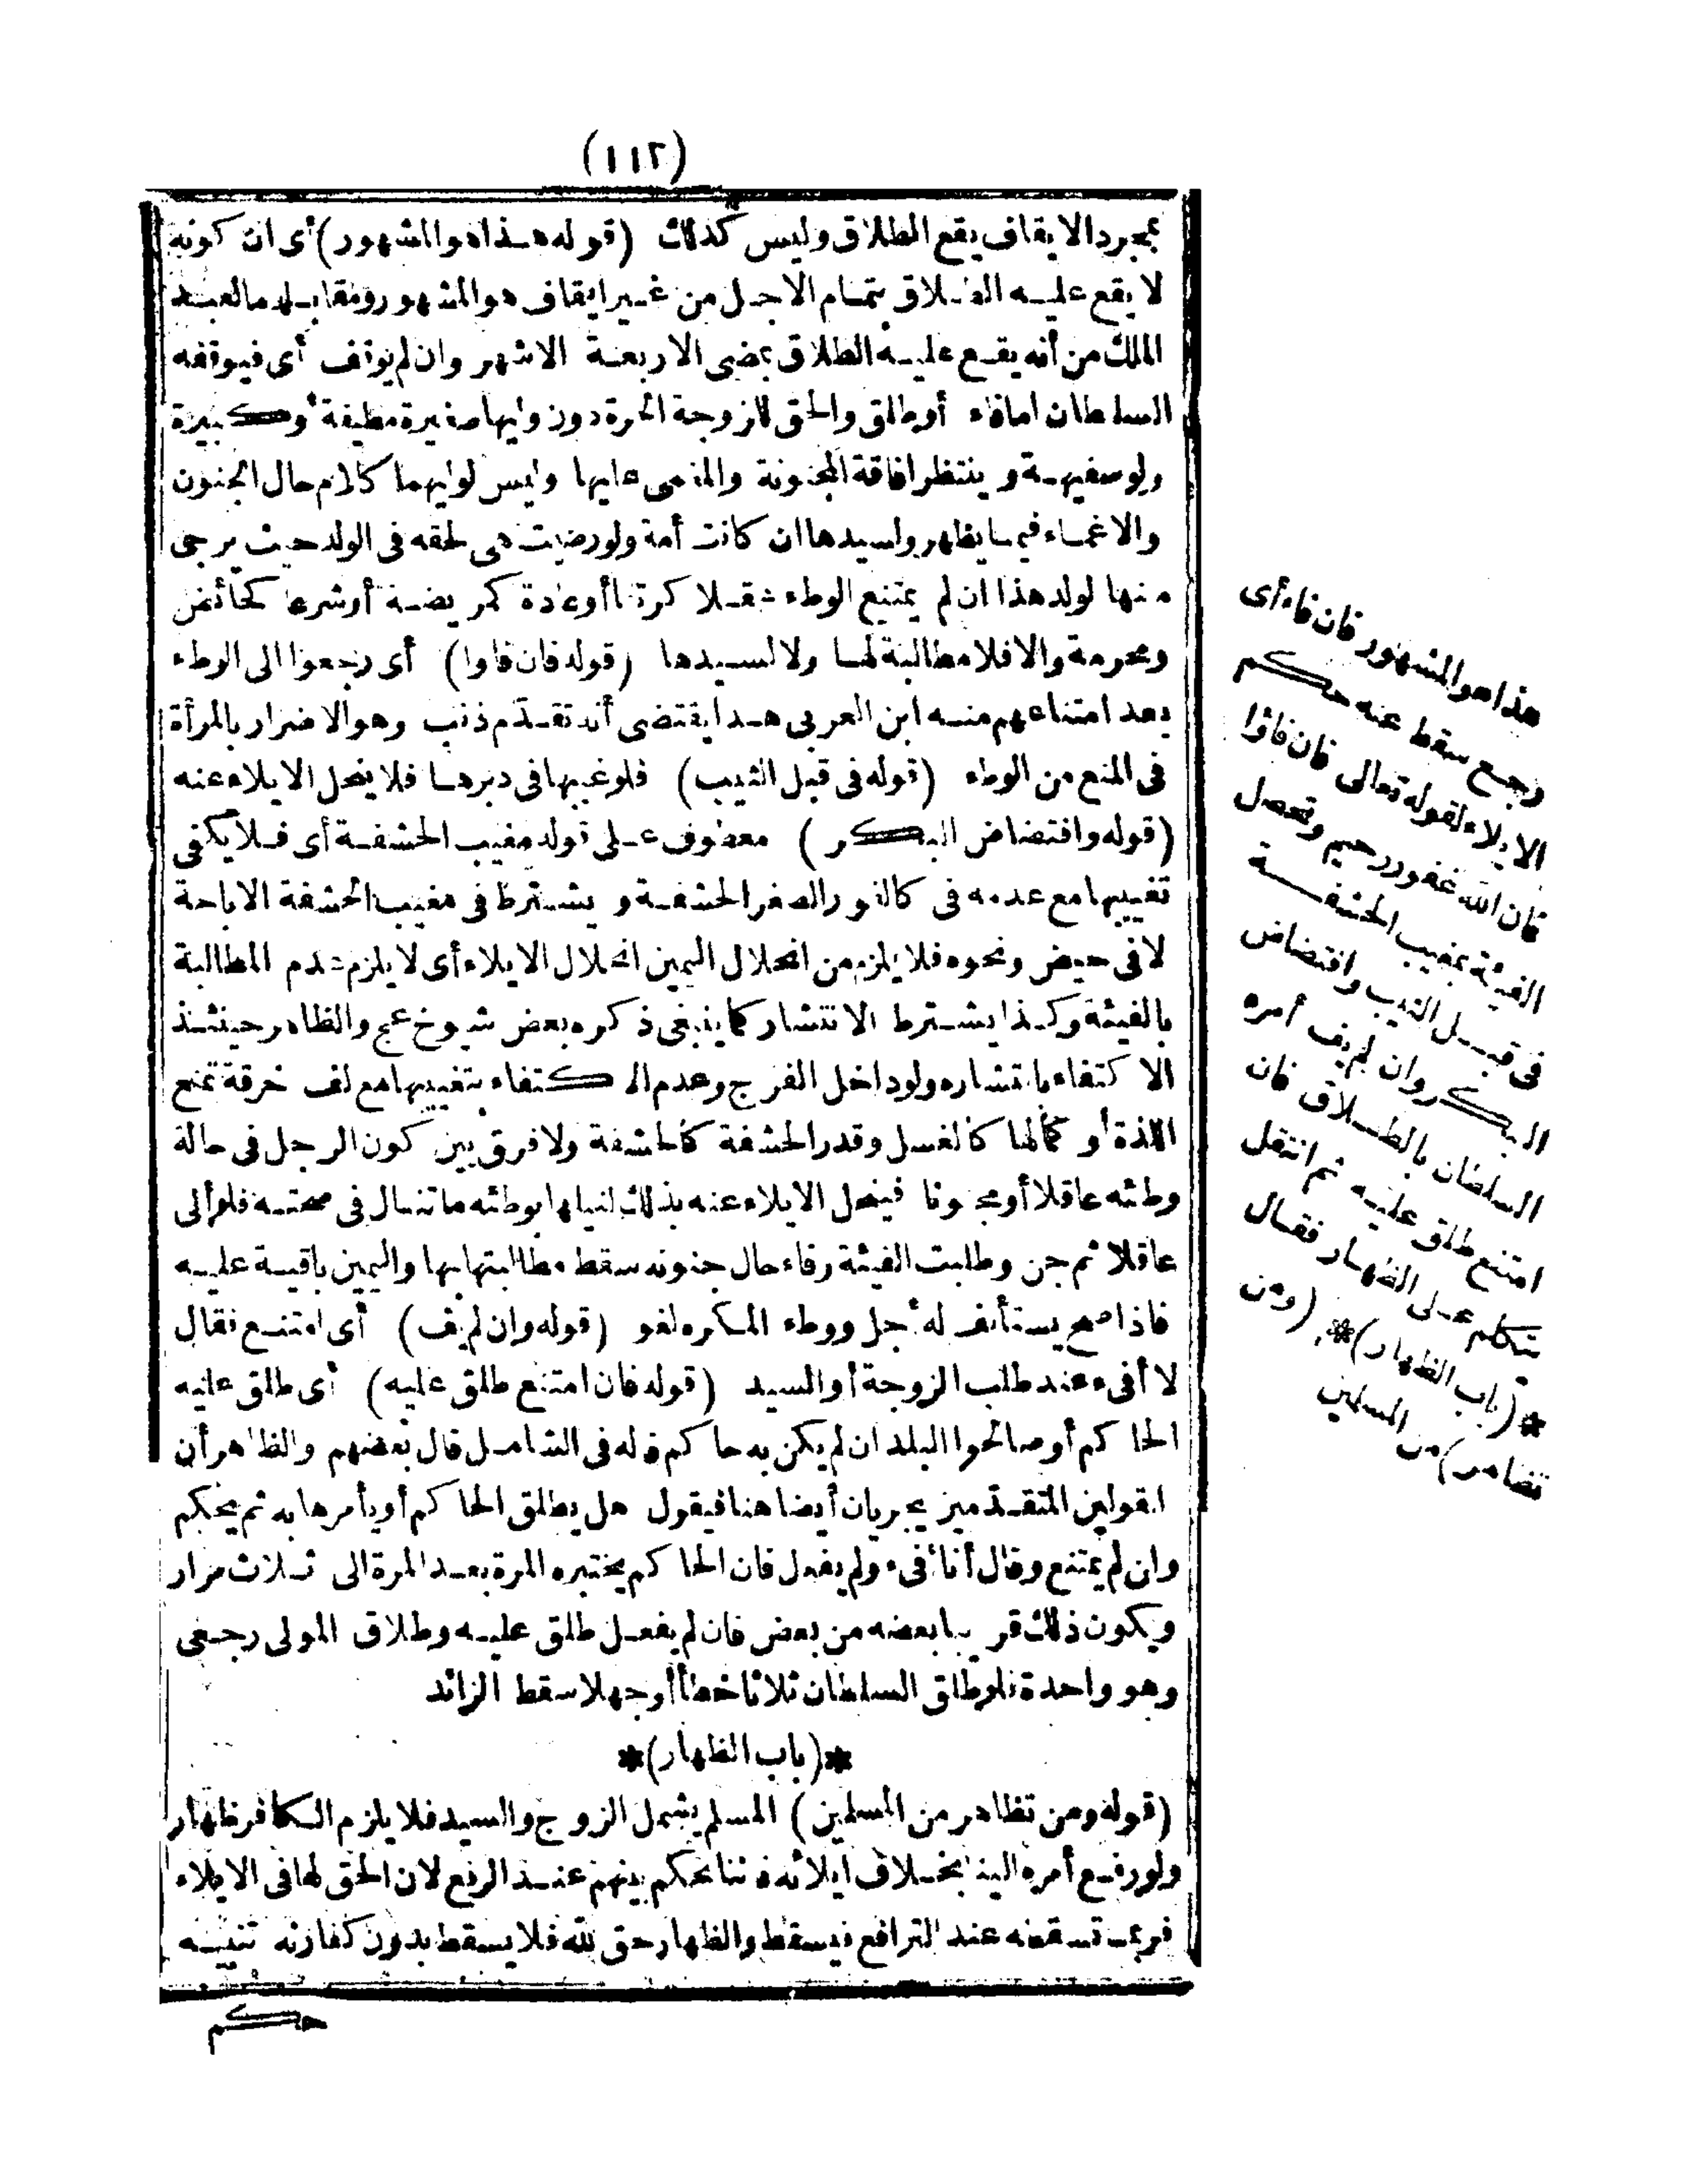 (١١٢)
بمجرد الايقاف يقع الطلاق وليس كذلك (قوله هذا هو المشهور) أى ان كونه
لا يقع عليه الطلاق بتمام الاجل من غير ايقاف هو المشهور ومقابله ما لعبد
الملك من أنه يقع عليه الطلاق بمضى الاربعة الاشهر وان لم يوقف أى فيوقفه
السلطان اما فاء أو طلق والحق للزوجة الحرة دون وليها صغيرة مطيقة أو كبيرة
ولو سفيهة وينتظر افاقة المجنونة والمغمى عليها وليس لوليهما كلام حال الجنون
والاغماء فيما يظهر ولسيدها ان كانت أمة ولو رضيت هى لحقه فى الولد حيث يرجى
منها لولد هذا ان لم يمتنع الوطء عقلا كرتقا أو عادة كمريضة أو شرعا كحائض
ومحرمة والا فلا مطالبة لها ولا لسيدها (قوله فان فاوا) أى رجعوا الى الوطء
بعد امتناعهم منه ابن العربى هذا يقتضى أنه تقدم ذنب وهو الاضرار بالمرأة
فى المنع من الوطء (قوله فى قبل الثيب) فلو غيبها فى دبرها فلا ينحل الايلاء عنه
(قوله وافتضاض البكر) معطوف على قوله مغيب الحشفة أى فلا يكفى
تغييبها مع عدمه فى كالغور الصغر الحشفة ويشترط فى مغيب الحشفة الاباحة
لا فى حيض ونحوه فلا يلزم من انحلال اليمين انحلال الايلاء أى لا يلزم عدم المطالبة
بالفيئة وكذا يشترط الانتشار كما ينبغى ذكره بعض شيوخ عج والظاهر حينئذ
الاكتفاء بانتشاره ولو داخل الفرج وعدم الاكتفاء بتغييبها مع لف خرقة تمنع
اللذة أو كمالها كالغسل وقدر الحشفة كالحشفة ولا فرق بين كون الرجل فى حالة
وطئه عاقلا أو مجنونا فينحل الايلاء عنه بذلك لنيلها بوطئه ما تنال فى صحته فلو آلى
عاقلا ثم جن وطلبت الفيئة وفاء حال جنونه سقط مطالبتها بها واليمين باقية عليه
فاذا صح يستأنف له أجل ووطء المكره لغو (قوله وان لم يف) أى امتنع فقال
لا أفىء عند طلب الزوجة أو السيد (قوله فان امتنع طلق عليه) أى طلق عليه
الحاكم أو صالحوا البلد ان لم يكن به حاكم قاله فى الشامل قال بعضهم والظاهر أن
القولين المتقدمين يجريان أيضا هنا فيقول هل يطلق الحاكم أو يأمرها به ثم يحكم
وان لم يمتنع وقال أنا أفىء ولم يفعل فان الحاكم يختبره المرة بعد المرة الى ثلاث مرار
ويكون ذلك قريبا بعضه من بعض فان لم يفعل طلق عليه وطلاق المولى رجعى
وهو واحدة فلو طلق السلطان ثلاثا خطأ أو جهلا سقط الزائد
*(باب الظهار)*
(قوله ومن تظاهر من المسلمين) المسلم يشمل الزوج والسيد فلا يلزم الكافر ظهار
ولو رفع أمره الينا بخلاف ايلائه فاننا نحكم بينهم عند الرفع لان الحق لها فى الايلاء
فربما تسقطه عند الترافع فيسقط والظهار حق لله فلا يسقط بدون كفارته تنبيه
حكم
هذا هو المشهور فان فاء أى
رجع سقط عنه حكم
الايلاء لقوله تعالى فان فاؤا
فان الله غفور رحيم وتحصل
الفيئة بمغيب الحشفة
فى قبل الثيب وافتضاض
البكر وان لم يف أمره
السلطان بالطلاق فان
امتنع طلق عليه ثم انتقل
يتكلم على الظهار فقال
*(باب الظهار)* (ومن
تظاهر) من المسلمين